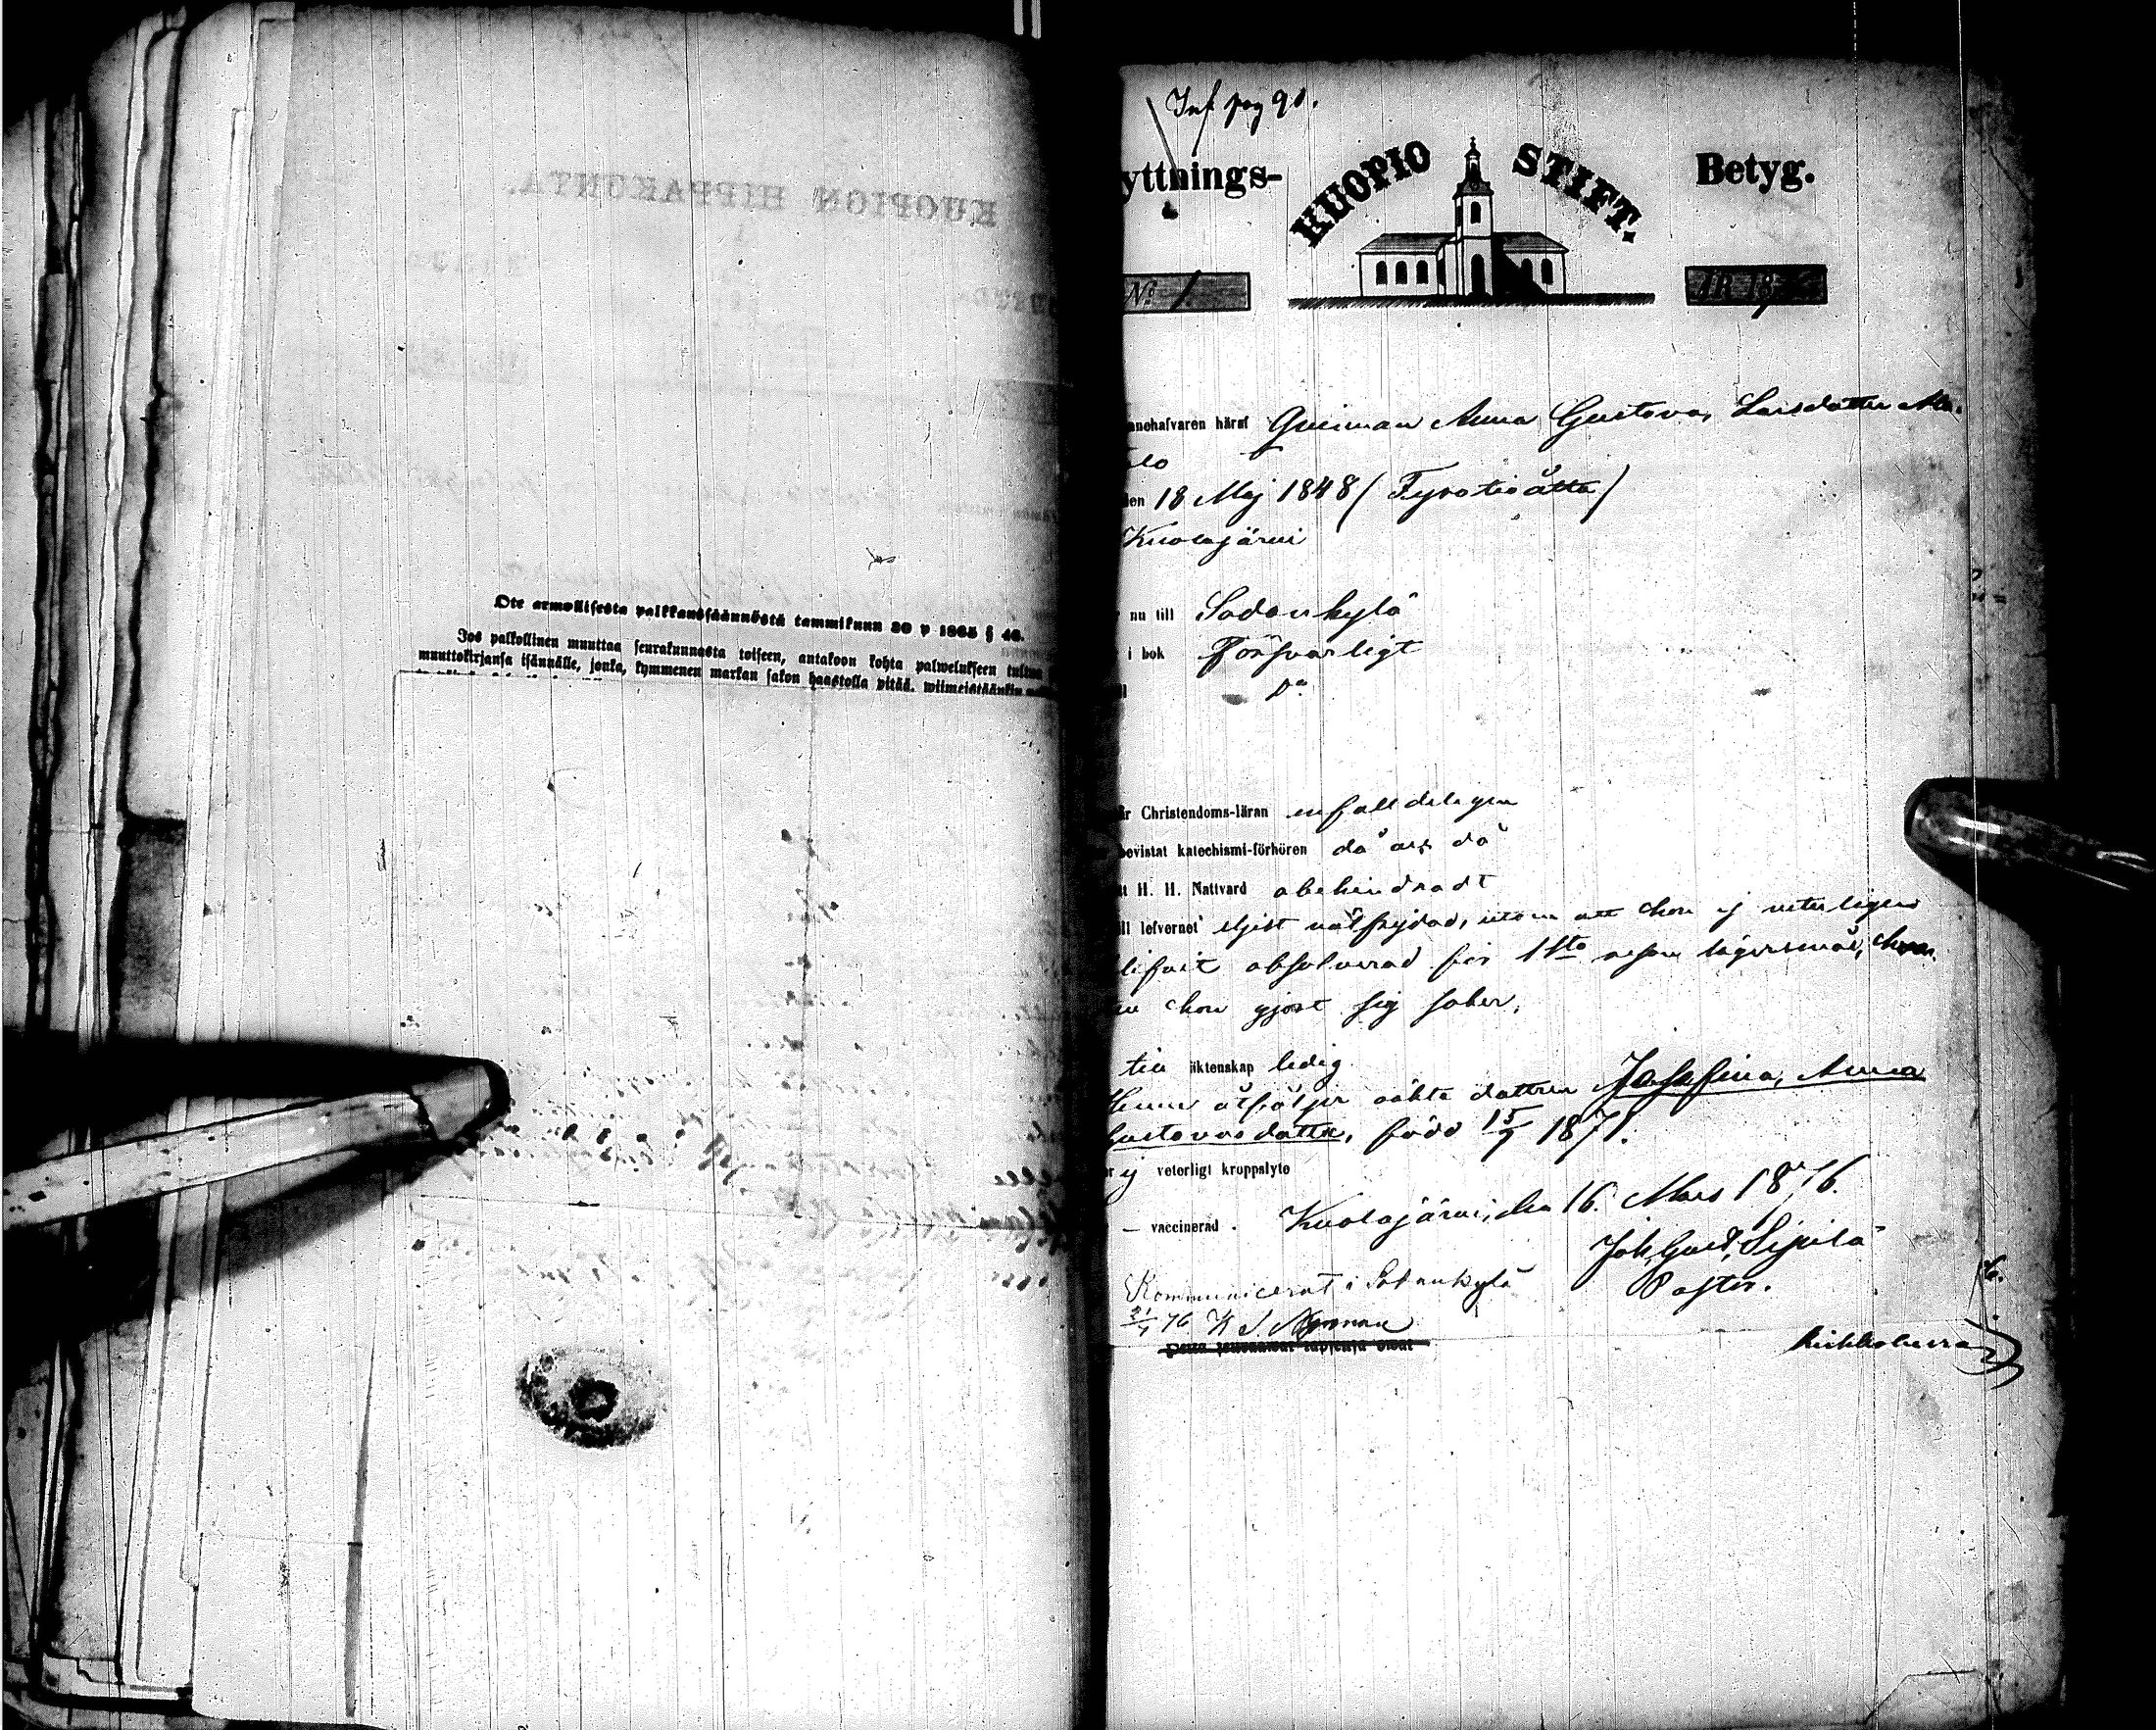 KUOPION HIPPAKUNTA.
Ote armollisesta palkkaussäännöstä tammikunn 30 p 1865 § 46.
Jos palkollinen muuttaa seurakunnasta toiseen, antakoon kohta palwelukseen tultua
muuttokirjansa isännälle, jonka, kymmenen markan sakon haastolla pitää, wiimeistäänkin
Inf pag 90.
yttnings- KUOPIO STIFT. Betyg.
No 1 ÅR 18
anehafvaren häraf Anna Gustava, Larsdotter
lo
den 18 Maj 1848 (Fyratioåtta)
Kuolajärvi
nu till Sodankylä
i bok Försvarligt
Do
år Christendoms-läran enfaldeligen
bevistat katechismi-förhören då och då
H. H. Nattvard obehindradt
ill lefvernet eljest välfrejdad, utom att hon ej veterligen
blifvit absolverad för 1sta resan lägersmål, hvar
hon gjort sig saker.
till äktenskap ledig.
Henne åtföljer oäkta dottren Josefina, Anna
Gustavasdotter, född 15/7 1871.
ej veterligt kroppslyte
– vaccinerad. Kuolajärvi, den 16 Mars 1876.
Joh. Gust. Sipilä
Pastor.
Kommunicerat i Sodankylä
76